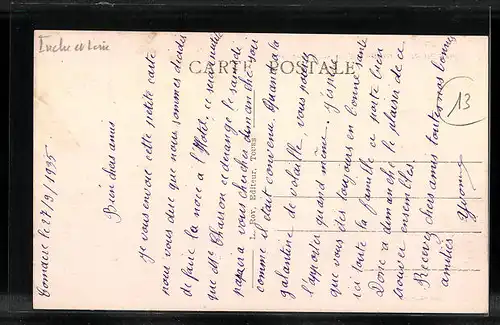 Indre et Loire
CARTE POSTALE
L. Roy, Editeur, Tours
13
le 27/9/1935
Bien chers amis
je vous envoie cette petite carte
pour vous dire que nous sommes décidés
de faire la noce à l'Hotel, ce
que Mr Chasson et dérange le samedi
passera vous chercher dimanche soir
comme il était convenu. Quand à la
galantine de volaille, vous pouvez
l'apporter quand même. J'espère
que vous êtes toujours en bonne santé
ici toute la famille se porte bien
Donc a dimanche le plaisir de se
trouver ensembles
Recevez chers amis toutes nos bonnes
amitiés Yvonne